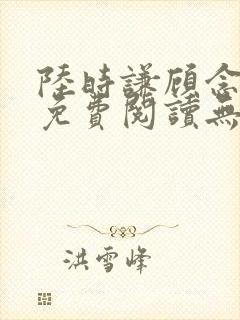 陸時謙顾念
免費閱讀無
洪雪峰